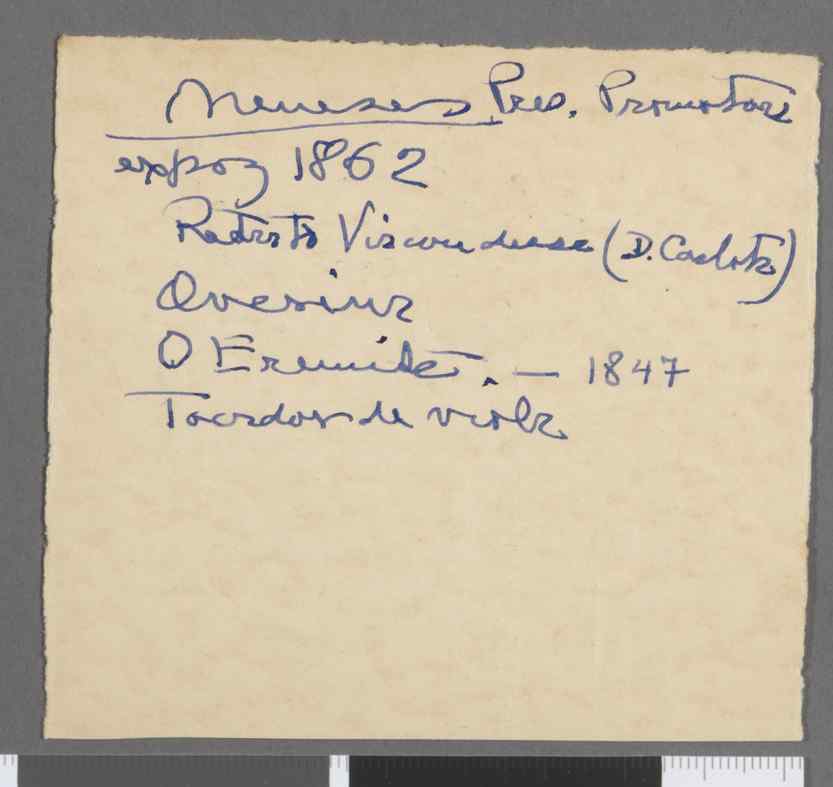 Meneses Pres. Promotora
expoz 1862
Retrato Viscondessa (D. Carlota)
Ovarina
O Eremita. — 1847
Tocador de viola